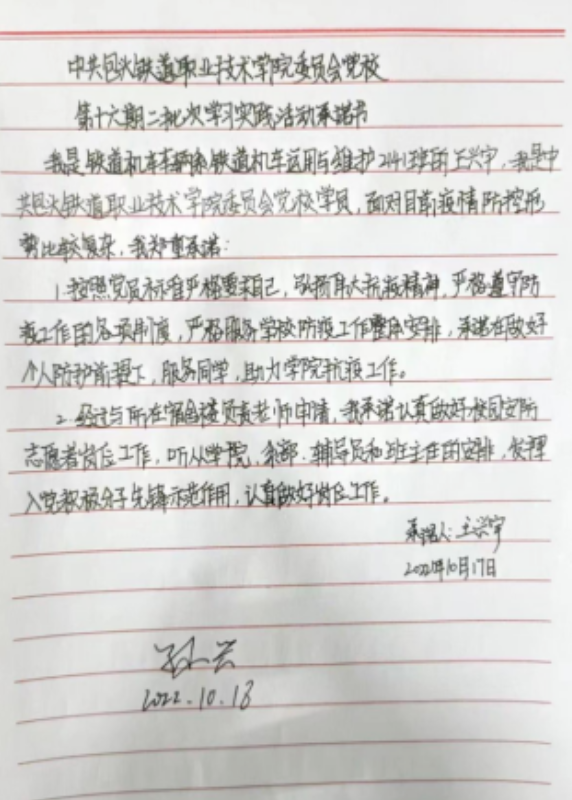 中共包头铁道职业技术学院委员会党校
第十六期二批次学习实践活动承诺书
我是铁道机车车辆系铁道机车运用与维护2141班的王兴宇,我是中
共包头铁道职业技术学院委员会党校学员,面对目前疫情防控形
势比较复杂,我郑重承诺:
1.按照党员标准严格要求自己,弘扬伟大抗疫精神,严格遵守防
疫工作的各项制度,严格服务学校防疫工作整体安排,承诺在做好
个人防护前提下,服务同学,助力学院抗疫工作。
2.经过与所在宿舍楼负责老师申请,我承诺认真做好校园安防
志愿者岗位工作,听从学院、系部、辅导员和班主任的安排,发挥
入党积极分子先锋示范作用,认真做好岗位工作。
承诺人:王兴宇
2022年10月17日
孙兴
2022.10.18